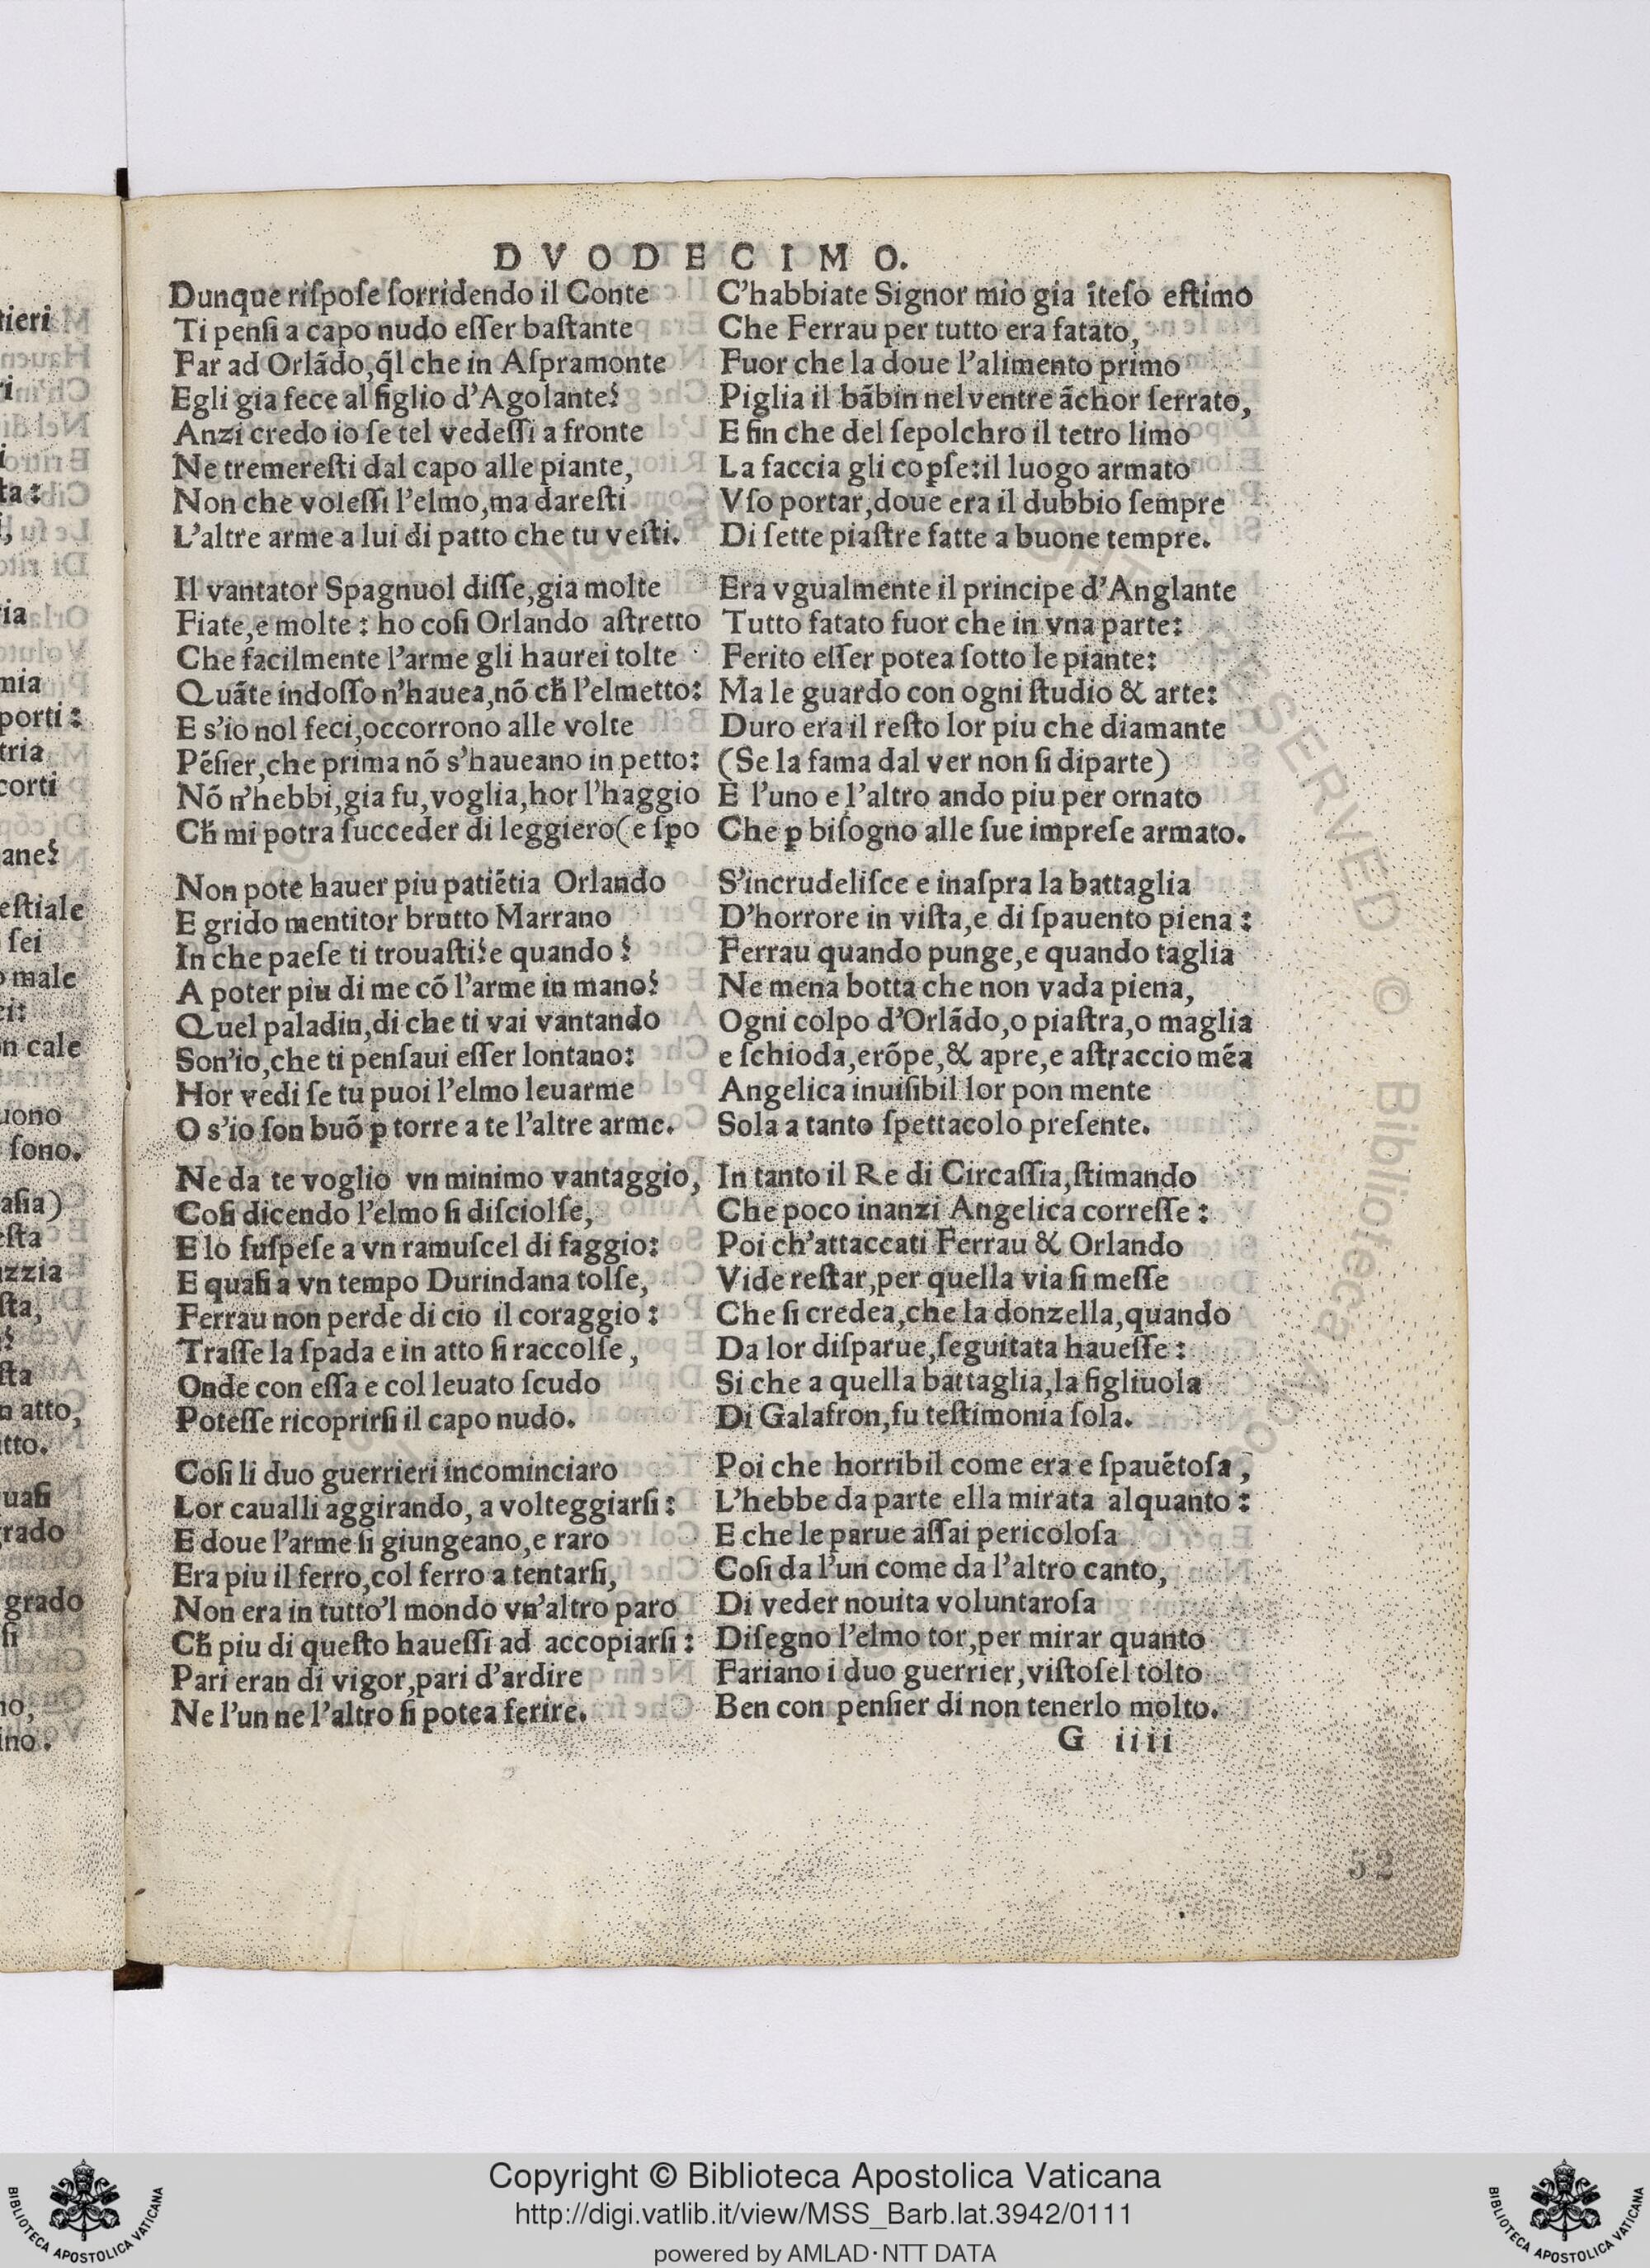 DVODECIMO.
Dunque riſpoſe ſorridendo il Conte
Ti penſi a capo nudo eſſer baſtante
Far ad Orlãdo,q̃l che in Aſpramonte
Egli gia fece al figlio d'Agolante?
Anzi credo io ſe tel vedeſſi a fronte
Ne tremereſti dal capo alle piante,
Non che voleſſi l'elmo,ma dareſti
L'altre arme a lui di patto che tu veſti.
Il vantator Spagnuol diſſe,gia molte
Fiate,e molte : ho coſi Orlando aſtretto
Che facilmente l'arme gli haurei tolte
Quãte indoſſo n'hauea,nõ cħ l'elmetto:
E s'io nol feci,occorrono alle volte
Pẽſier,che prima nõ s'haueano in petto:
Nõ n'hebbi,gia fu,voglia,hor l'haggio
Cħ mi potra ſucceder di leggiero(e ſpo
Non pote hauer piu patiẽtia Orlando
E grido mentitor brutto Marrano
In che paeſe ti trouaſti?e quando?
A poter piu di me cõ l'arme in mano?
Quel paladin,di che ti vai vantando
Son'io,che ti penſaui eſſer lontano:
Hor vedi ſe tu puoi l'elmo leuarme
O s'io ſon buõ ꝑ torre a te l'altre arme.
Ne da te voglio vn minimo vantaggio,
Coſi dicendo l'elmo ſi diſciolſe,
E lo ſuſpeſe a vn ramuſcel di faggio:
E quaſi a vn tempo Durindana tolſe,
Ferrau non perde di cio il coraggio :
Traſſe la ſpada e in atto ſi raccolſe ,
Onde con eſſa e col leuato ſcudo
Poteſſe ricoprirſi il capo nudo.
Coſi li duo guerrieri incominciaro
Lor caualli aggirando, a volteggiarſi :
E doue l'arme ſi giungeano,e raro
Era piu il ferro,col ferro a tentarſi,
Non era in tutto'l mondo vn'altro paro
Cħ piu di queſto haueſſi ad accopiarſi :
Pari eran di vigor,pari d'ardire
Ne l'un ne l'altro ſi potea ferire.
C'habbiate Signor mio gia ĩteſo eſtimo
Che Ferrau per tutto era fatato,
Fuor che la doue l'alimento primo
Piglia il bãbin nel ventre ãchor ſerrato,
E fin che del ſepolchro il tetro limo
La faccia gli coꝑſe:il luogo armato
Vſo portar,doue era il dubbio ſempre
Di ſette piaſtre fatte a buone tempre.
Era vgualmente il principe d'Anglante
Tutto fatato fuor che in vna parte:
Ferito eſſer potea ſotto le piante:
Ma le guardo con ogni ſtudio & arte:
Duro era il reſto lor piu che diamante
(Se la fama dal ver non ſi diparte)
E l'uno e l'altro ando piu per ornato
Che ꝑ biſogno alle ſue impreſe armato.
S'incrudeliſce e inaſpra la battaglia
D'horrore in viſta,e di ſpauento piena :
Ferrau quando punge,e quando taglia
Ne mena botta che non vada piena,
Ogni colpo d'Orlãdo,o piaſtra,o maglia
e ſchioda,erõpe,& apre,e aſtraccio mẽa
Angelica inuiſibil lor pon mente
Sola a tanto ſpettacolo preſente.
In tanto il Re di Circaſſia,ſtimando
Che poco inanzi Angelica correſſe :
Poi ch'attaccati Ferrau & Orlando
Vide reſtar,per quella via ſi meſſe
Che ſi credea,che la donzella,quando
Da lor diſparue,ſeguitata haueſſe :
Si che a quella battaglia,la figliuola
Di Galafron,fu teſtimonia ſola.
Poi che horribil come era e ſpauẽtoſa ,
L'hebbe da parte ella mirata alquanto :
E che le parue aſſai pericoloſa
Coſi da l'un come da l'altro canto,
Di veder nouita voluntaroſa
Diſegno l'elmo tor,per mirar quanto
Fariano i duo guerrier,viſtoſel tolto
Ben con penſier di non tenerlo molto.
G iiii
52
Copyright © Biblioteca Apostolica Vaticana
http://digi.vatlib.it/view/MSS_Barb.lat.3942/0111
powered by AMLAD·NTT DATA
BIBLIOTECA APOSTOLICA VATICANA
BIBLIOTECA APOSTOLICA VATICANA